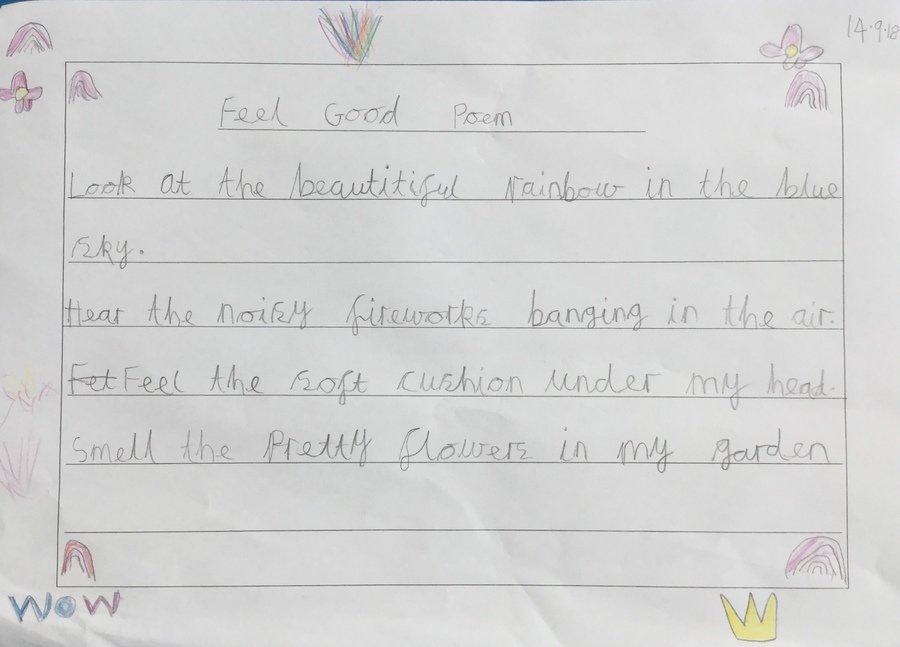 14.9.18
Feel Good Poem
Look at the beautitiful rainbow in the blue
sky.
Hear the noisy fireworks banging in the air.
Fet Feel the soft cushion under my head.
Smell the Pretty flowers in my garden
WOW